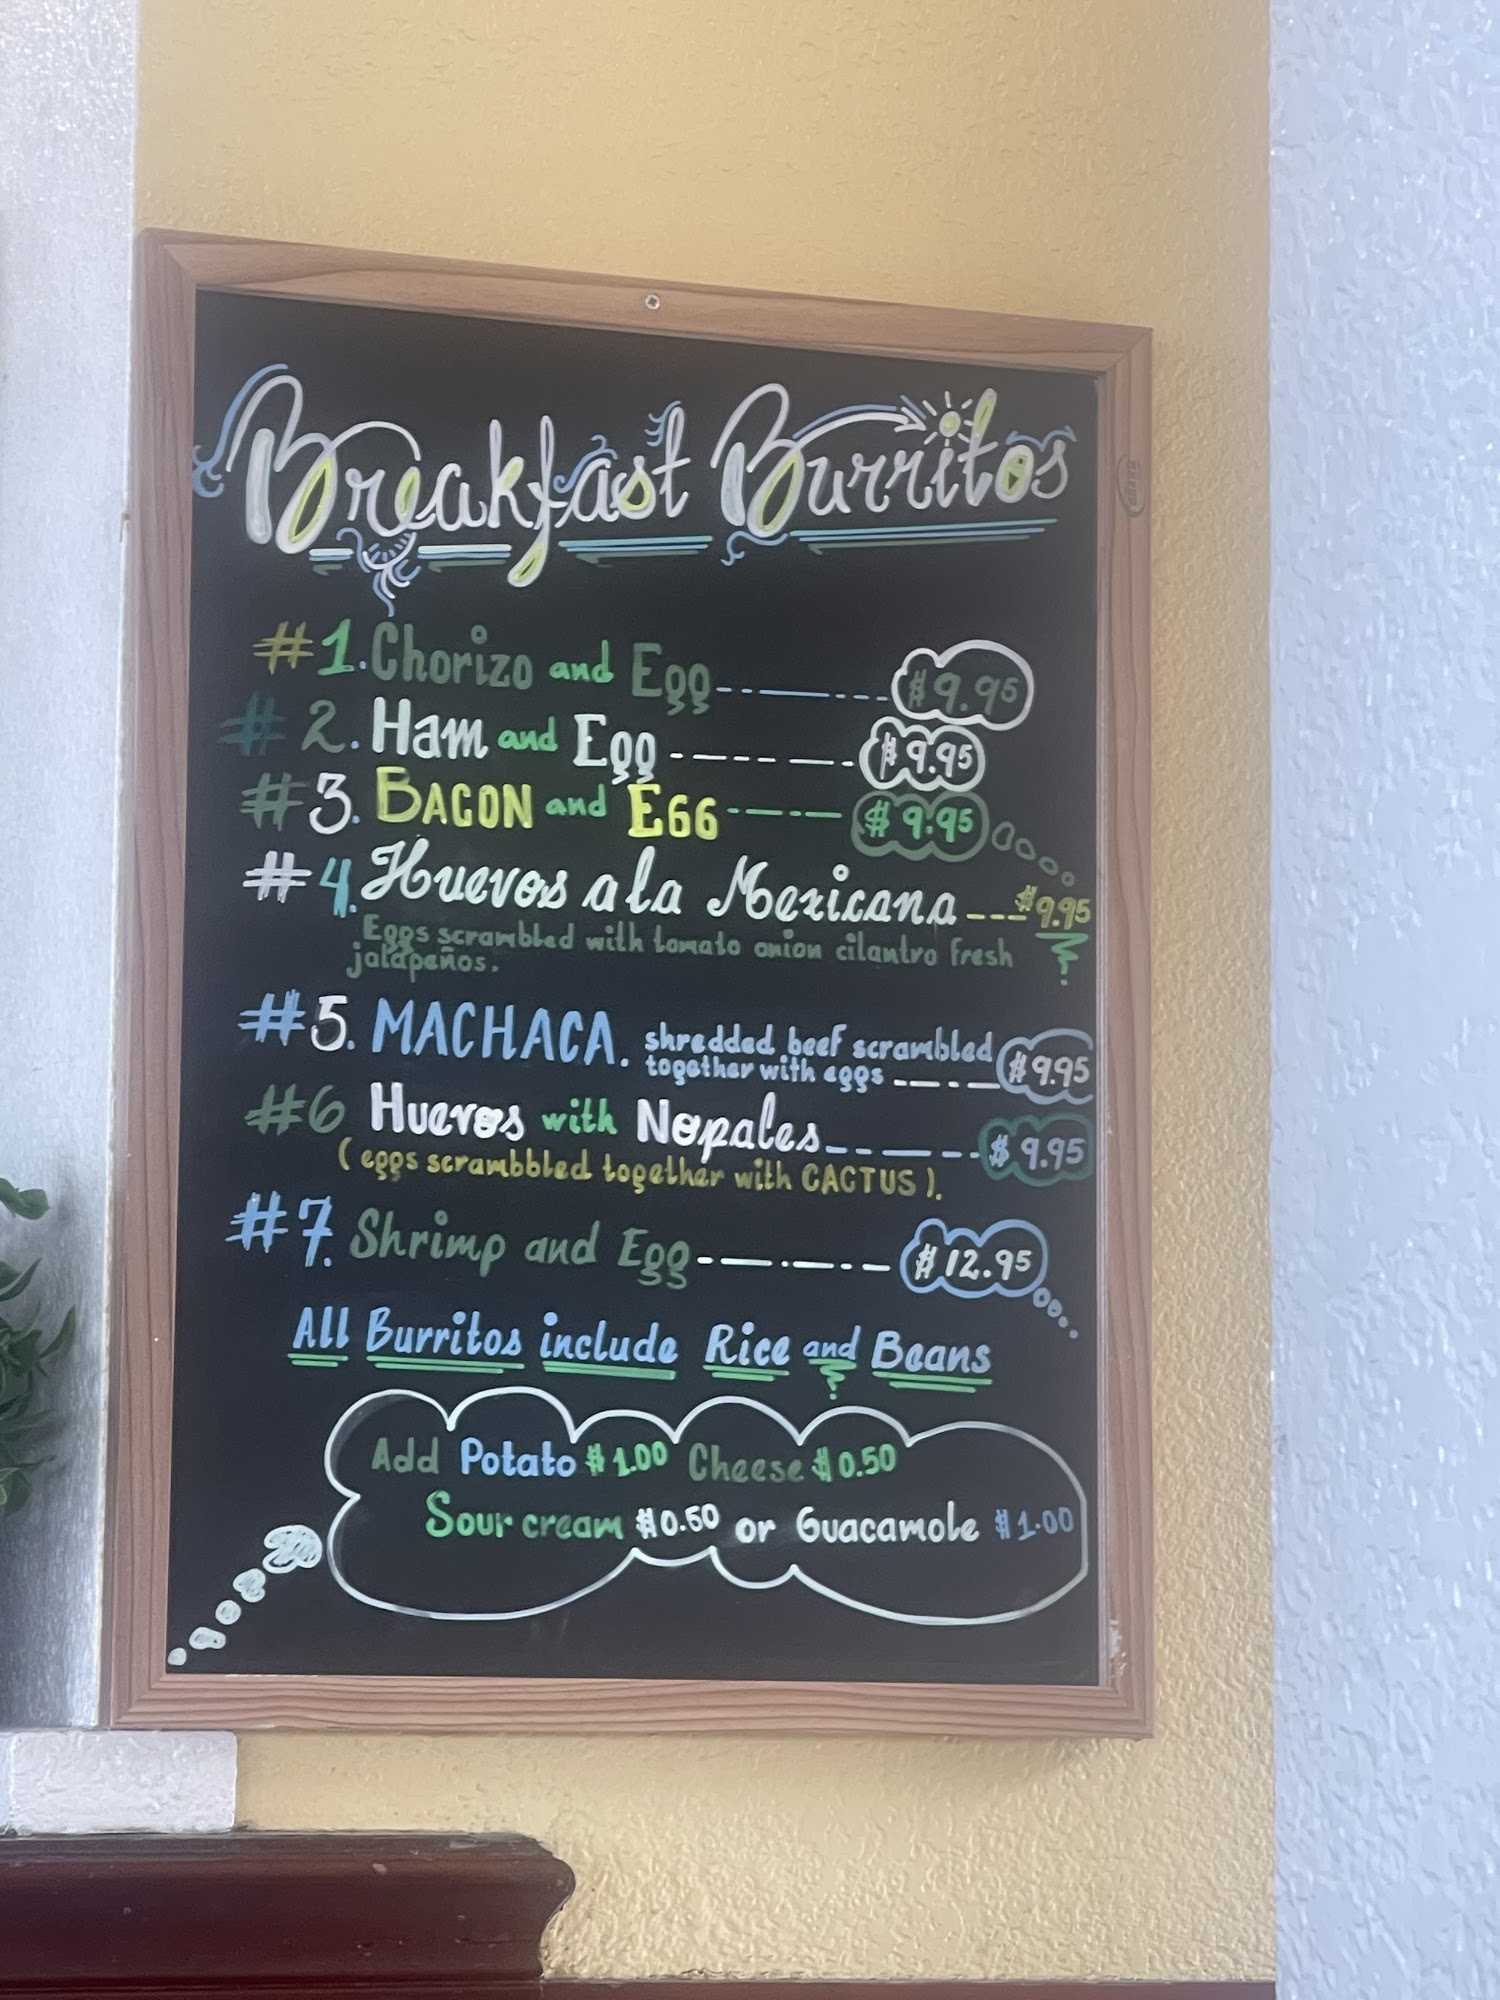 Breakfast Burritos
#1. Chorizo and Egg $9.95
#2. Ham and Egg $9.95
#3. BACON and EGG $9.95
#4. Huevos a la Mexicana $9.95
Eggs scrambled with tomato onion cilantro fresh
jalapeños.
#5. MACHACA. shredded beef scrambled
together with eggs $9.95
#6 Huevos with Nopales $9.95
(eggs scrambbled together with CACTUS).
#7. Shrimp and Egg $12.95
All Burritos include Rice and Beans
Add Potato $1.00 Cheese $0.50
Sour cream $0.50 or Guacamole $1.00